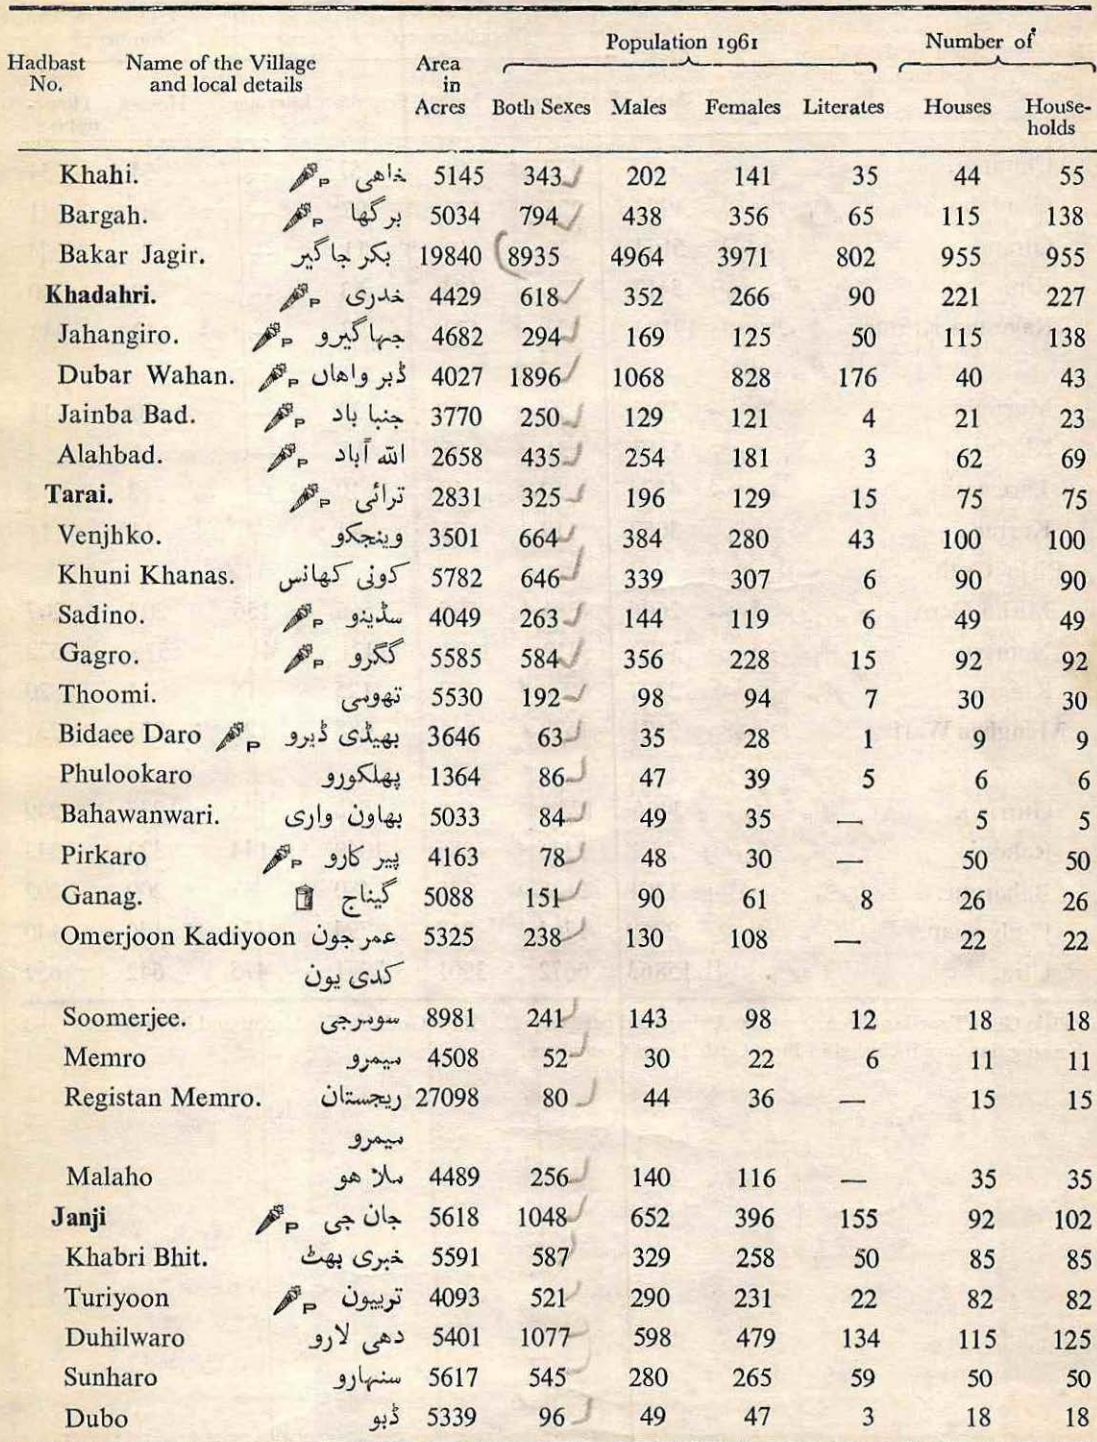 Population 1961 Number of
Hadbast Name of the Village Area
No. and local details in
Acres Both Sexes Males Females Literates Houses House-
holds
Khahi. خاهی P 5145 343 202 141 35 44 55
Bargah. برگها P 5034 794 438 356 65 115 138
Bakar Jagir. بکر جاگیر 19840 8935 4964 3971 802 955 955
Khadahri. خدری P 4429 618 352 266 90 221 227
Jahangiro. جہاگیرو P 4682 294 169 125 50 115 138
Dubar Wahan. ڈبر واهاں P 4027 1896 1068 828 176 40 43
Jainba Bad. جنبا باد P 3770 250 129 121 4 21 23
Alahbad. اللہ آباد P 2658 435 254 181 3 62 69
Tarai. ترائی P 2831 325 196 129 15 75 75
Venjhko. وینجکو 3501 664 384 280 43 100 100
Khuni Khanas. کونی کھانس 5782 646 339 307 6 90 90
Sadino. سڈینو P 4049 263 144 119 6 49 49
Gagro. گگرو P 5585 584 356 228 15 92 92
Thoomi. تھومی 5530 192 98 94 7 30 30
Bidaee Daro P بھیڈی ڈیرو 3646 63 35 28 1 9 9
Phulookaro پھلکورو 1364 86 47 39 5 6 6
Bahawanwari. بھاون واری 5033 84 49 35 — 5 5
Pirkaro پیر کارو P 4163 78 48 30 — 50 50
Ganag. گیناج 5088 151 90 61 8 26 26
Omerjoon Kadiyoon عمر جون 5325 238 130 108 — 22 22
کدی یون
Soomerjee. سومرجی 8981 241 143 98 12 18 18
Memro میمرو 4508 52 30 22 6 11 11
Registan Memro. ریجستان 27098 80 44 36 — 15 15
میمرو
Malaho ملا هو 4489 256 140 116 — 35 35
Janji جان جی P 5618 1048 652 396 155 92 102
Khabri Bhit. خبری بھٹ 5591 587 329 258 50 85 85
Turiyoon ترییون P 4093 521 290 231 22 82 82
Duhilwaro دهی لارو 5401 1077 598 479 134 115 125
Sunharo سنہارو 5617 545 280 265 59 50 50
Dubo ڈبو 5339 96 49 47 3 18 18